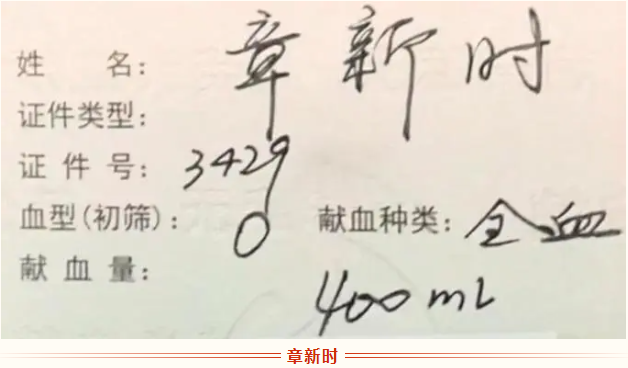 姓 名: 章新时
证件类型:
证件号: 3429
血型(初筛): O 献血种类: 全血
献血量: 400 mL
章新时